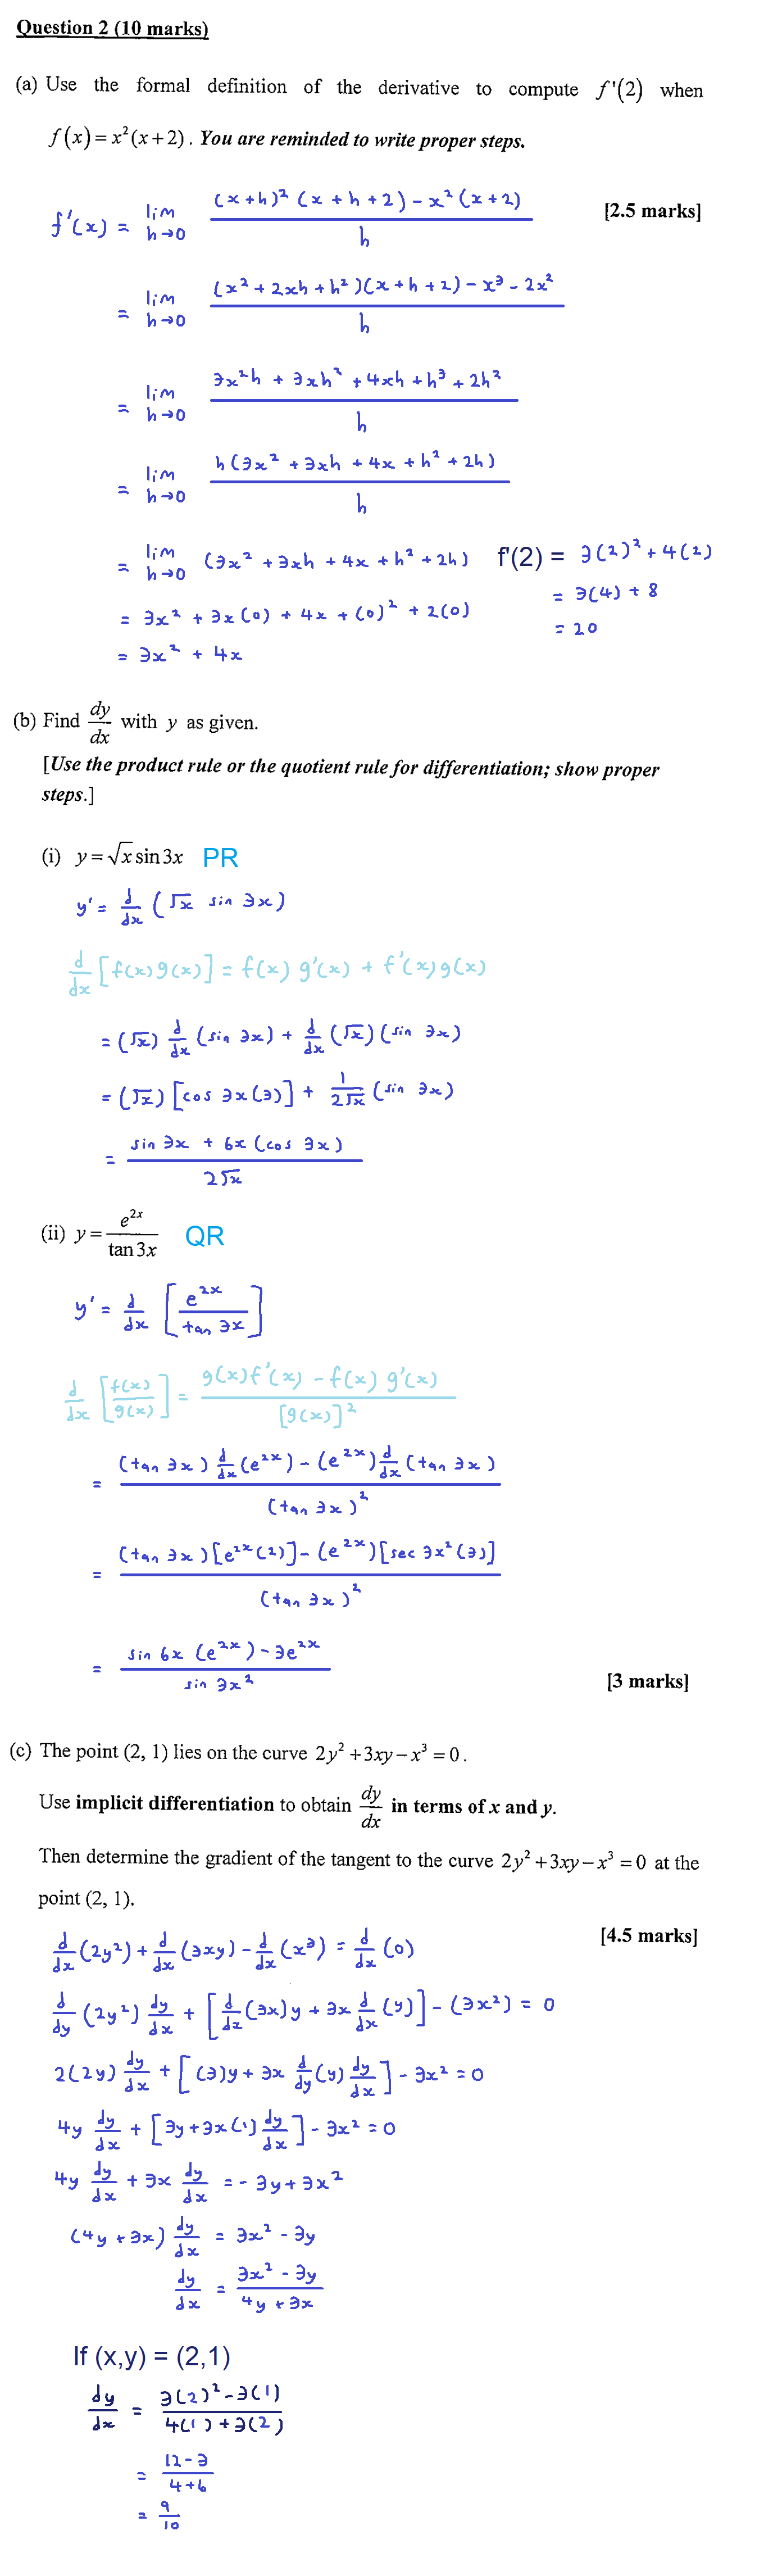 Question 2 (10 marks)
(a) Use the formal definition of the derivative to compute f'(2) when
f(x) = x²(x+2). You are reminded to write proper steps.
[2.5 marks]
f'(x) = lim h→0 ((x+h)² (x+h+2) - x² (x+2))/h
= lim h→0 ((x² + 2xh + h²)(x+h+2) - x³ - 2x²)/h
= lim h→0 (3x²h + 3xh² + 4xh + h³ + 2h²)/h
= lim h→0 (h(3x² + 3xh + 4x + h² + 2h))/h
= lim h→0 (3x² + 3xh + 4x + h² + 2h)
= 3x² + 3x(0) + 4x + (0)² + 2(0)
= 3x² + 4x
f'(2) = 3(2)² + 4(2)
= 3(4) + 8
= 20
(b) Find dy/dx with y as given.
[Use the product rule or the quotient rule for differentiation; show proper
steps.]
(i) y = √x sin 3x PR
y' = d/dx (√x sin 3x)
d/dx [f(x)g(x)] = f(x) g'(x) + f'(x) g(x)
= (√x) d/dx (sin 3x) + d/dx (√x) (sin 3x)
= (√x) [cos 3x(3)] + 1/(2√x) (sin 3x)
= (sin 3x + 6x (cos 3x))/(2√x)
(ii) y = e^(2x)/(tan 3x) QR
y' = d/dx [e^(2x)/(tan 3x)]
d/dx [f(x)/g(x)] = (g(x)f'(x) - f(x) g'(x))/[g(x)]²
= ((tan 3x) d/dx (e^(2x)) - (e^(2x)) d/dx (tan 3x))/(tan 3x)²
= ((tan 3x)[e^(2x)(2)] - (e^(2x))[sec 3x²(3)])/(tan 3x)²
= (sin 6x (e^(2x)) - 3e^(2x))/(sin 3x²)
[3 marks]
(c) The point (2, 1) lies on the curve 2y² + 3xy - x³ = 0.
Use implicit differentiation to obtain dy/dx in terms of x and y.
Then determine the gradient of the tangent to the curve 2y² + 3xy - x³ = 0 at the
point (2, 1).
[4.5 marks]
d/dx (2y²) + d/dx (3xy) - d/dx (x³) = d/dx (0)
d/dy (2y²) dy/dx + [d/dx (3x)y + 3x d/dx (y)] - (3x²) = 0
2(2y) dy/dx + [(3)y + 3x d/dy (y) dy/dx] - 3x² = 0
4y dy/dx + [3y + 3x(1) dy/dx] - 3x² = 0
4y dy/dx + 3x dy/dx = - 3y + 3x²
(4y + 3x) dy/dx = 3x² - 3y
dy/dx = (3x² - 3y)/(4y + 3x)
If (x,y) = (2,1)
dy/dx = (3(2)² - 3(1))/(4(1) + 3(2))
= (12 - 3)/(4 + 6)
= 9/10